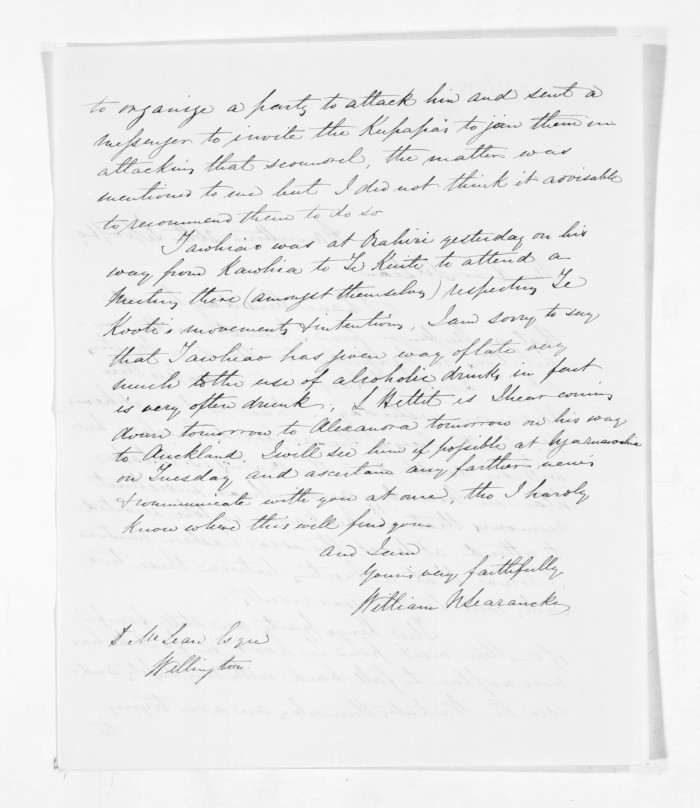 to organize a party to attack him and sent a
messenger to invite the Kupapa's to join them in
attacking that scoundrel, the matter was
mentioned to me but I did not think it advisable
to recommend them to do so
Tawhiao was at Orahiri yesterday on his
way from Kawhia to Te Kuiti to attend a
Meeting there (amongst themselves) respecting Te
Kooti's movements & intentions, I am sorry to say
that Tawhiao has given way of late very
much to the use of alcoholic drinks, in fact
is very often drunk, L Hettit is I hear coming
down tomorrow to Alexandra tomorrow on his way
to Auckland, I will see him if possible at Ngaruawahia
on Tuesday and ascertain any farther news
& communicate with you at once, tho I hardly
know where this will find you
and I am
Yours very faithfully
William N Searancke
D McLean Esqre
Wellington